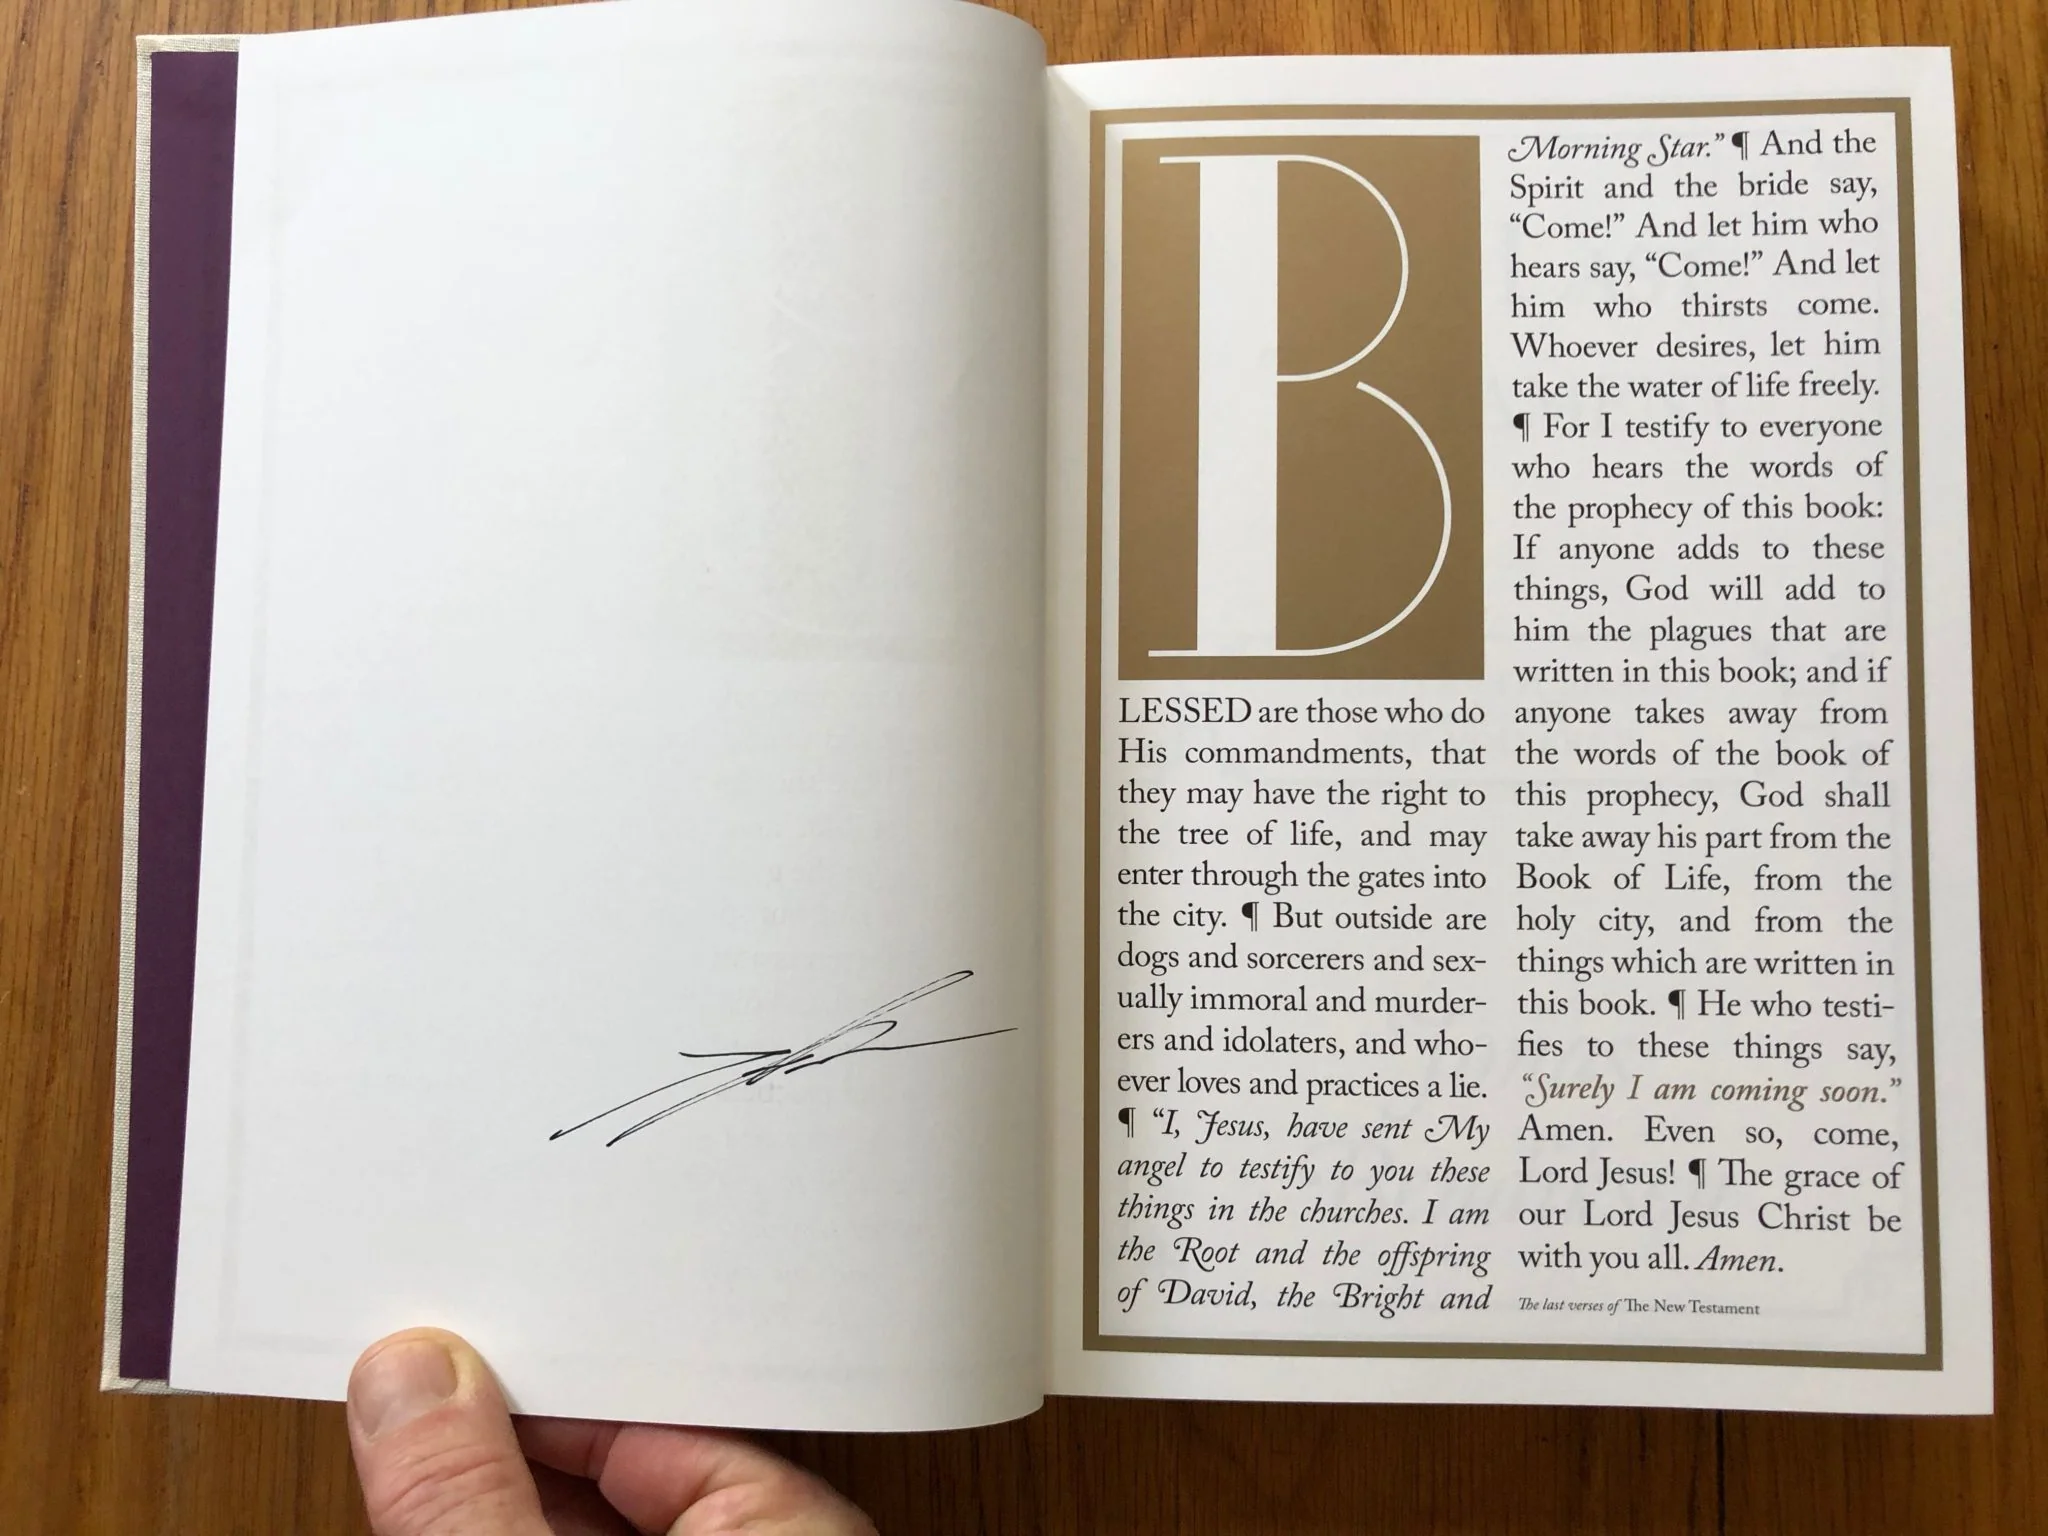 B
LESSED are those who do
His commandments, that
they may have the right to
the tree of life, and may
enter through the gates into
the city. ¶ But outside are
dogs and sorcerers and sex-
ually immoral and murder-
ers and idolaters, and who-
ever loves and practices a lie.
¶ “I, Jesus, have sent My
angel to testify to you these
things in the churches. I am
the Root and the offspring
of David, the Bright and
Morning Star.” ¶ And the
Spirit and the bride say,
“Come!” And let him who
hears say, “Come!” And let
him who thirsts come.
Whoever desires, let him
take the water of life freely.
¶ For I testify to everyone
who hears the words of
the prophecy of this book:
If anyone adds to these
things, God will add to
him the plagues that are
written in this book; and if
anyone takes away from
the words of the book of
this prophecy, God shall
take away his part from the
Book of Life, from the
holy city, and from the
things which are written in
this book. ¶ He who testi-
fies to these things say,
“Surely I am coming soon.”
Amen. Even so, come,
Lord Jesus! ¶ The grace of
our Lord Jesus Christ be
with you all. Amen.
The last verses of The New Testament